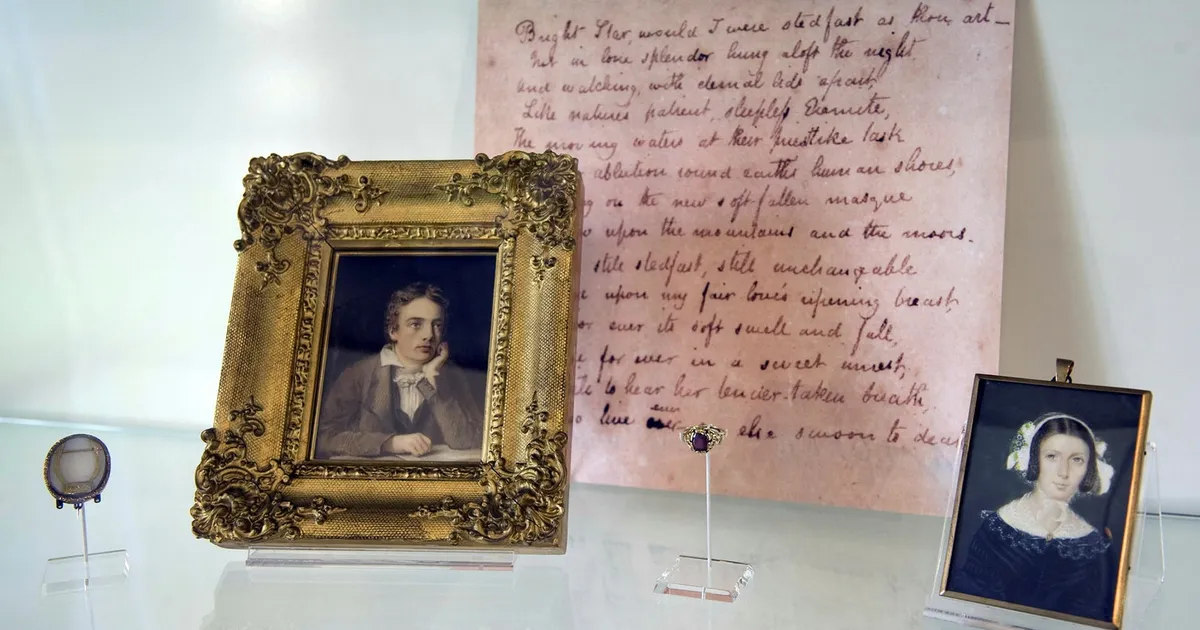 Bright Star, would I were stedfast as thou art—
Not in lone splendor hung aloft the night
and watching, with eternal lids apart,
Like natures patient, sleepless Eremite,
The moving waters at their priestlike task
ablution round earth's human shores,
on the new soft-fallen masque
upon the mountains and the moors.
still stedfast, still unchangeable
upon my fair love's ripening breast,
ever its soft swell and fall,
for ever in a sweet unrest,
to hear her tender-taken breath,
live ever else swoon to